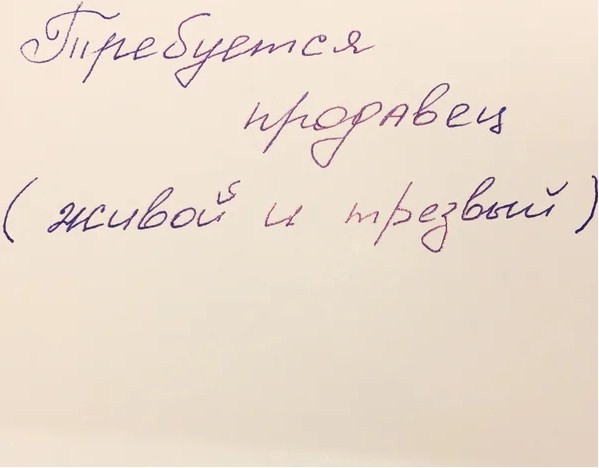 Требуется
продавец
(живой и трезвый)